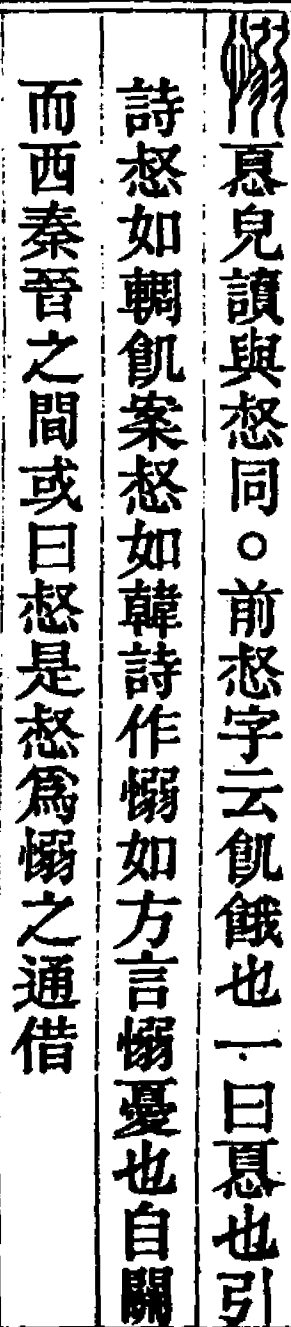 愵㥑皃讀與惄同○前惄字云飢餓也一曰㥑也引
詩惄如輖飢案惄如韓詩作愵如方言愵憂也自關
而西秦晉之間或曰惄是惄爲愵之通借